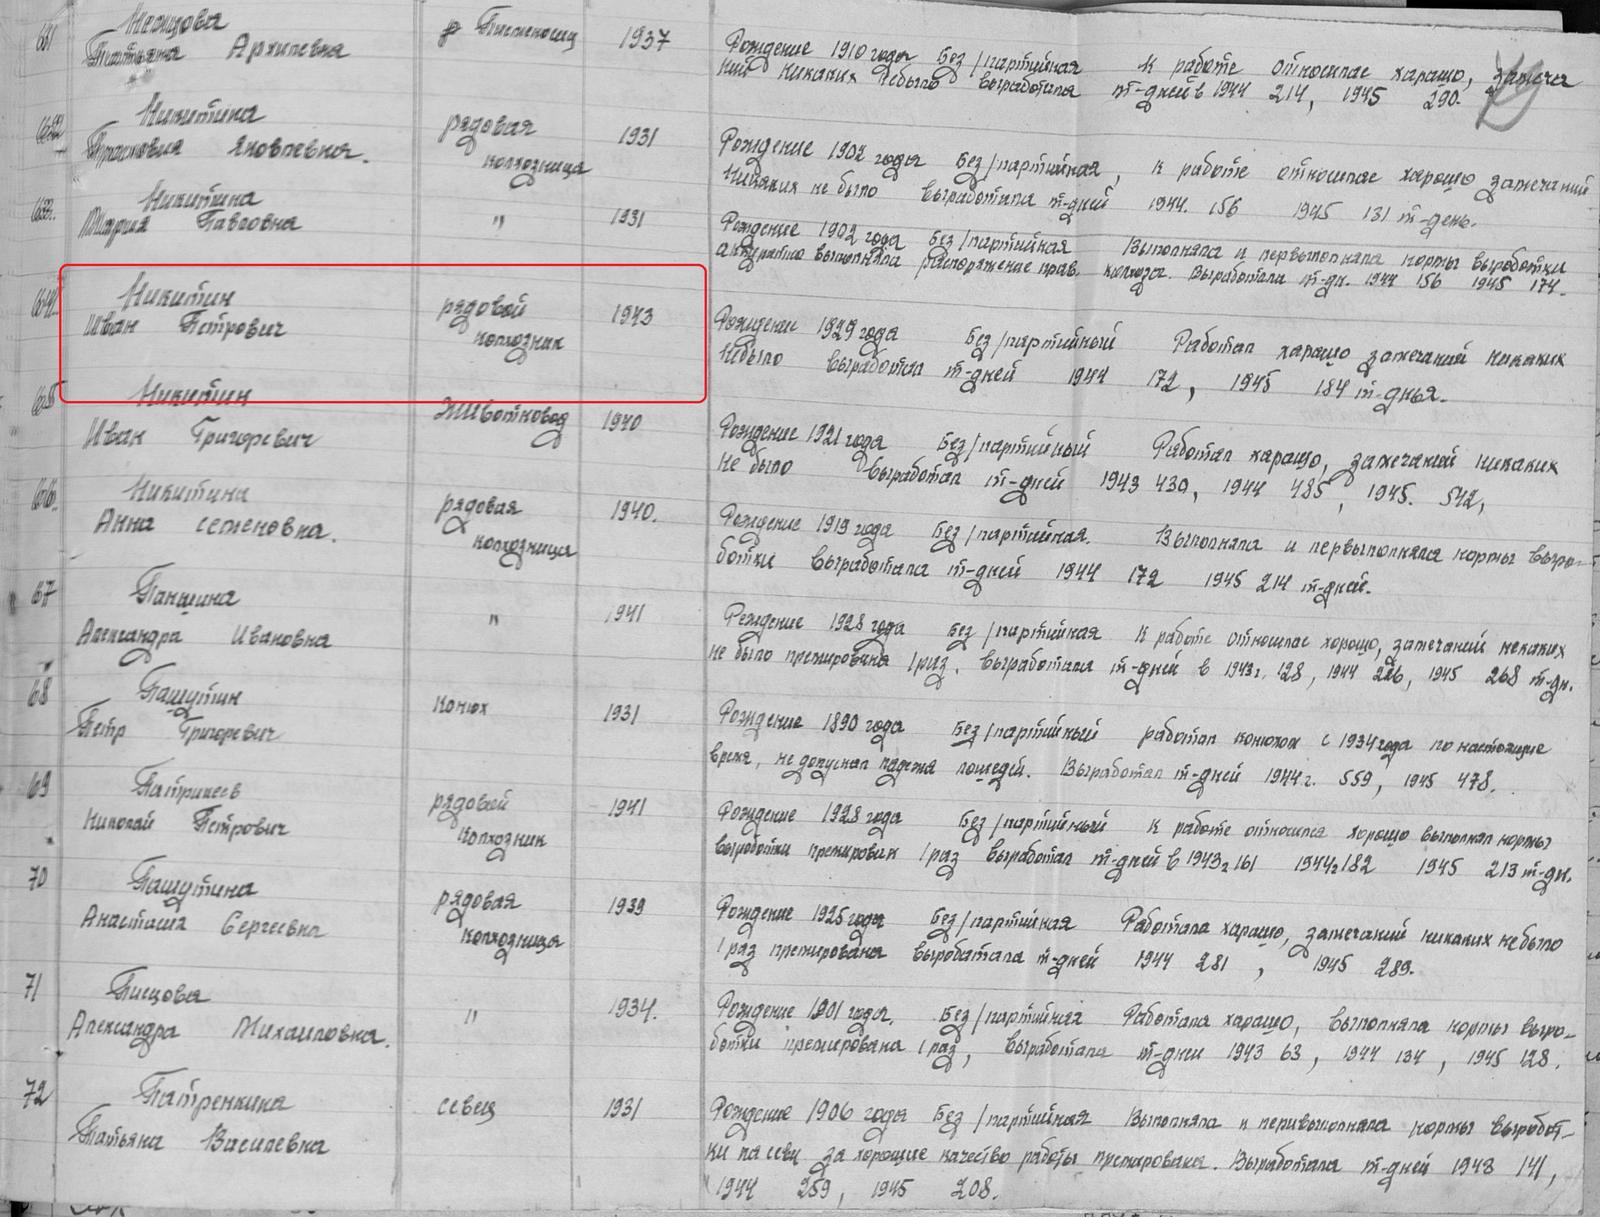 61 Немцова
Татьяна Архиповна
1937
Рождение 1910 года Без/партийная К работе относилас харашо, замеча
ний никаких небыло выработала т-дней в 1944 214, 1945 290.
62 Никитина
Прасковия Яковлевна.
рядовая
колхозница
1931
Рождение 1902 года Без/партийная, К работе относилас харашо замечаний
никаких не было выработала т-дней 1944. 156 1945 131 т-день.
63. Никитина
Мария Павловна
"
1931
Рождение 1902 года Без/партийная Выполняла и первыполняла нормы выработки
акуратно выполняла распоряжение прав. колхоза. Выработала т-дн. 1944 156 1945 174.
64. Никитин
Иван Петрович
рядовой
колхозник
1943
Рождение 1929 года Без/партийный Работал харашо замечаний никаких
небыло выработал т-дней 1944 172, 1945 184 т-днья.
65 Никитин
Иван Григоревич
животновод
1940
Рождение 1921 года Без/партийный Работал харашо, замечаний никаких
не было выработал т-дней 1943 430, 1944 485, 1945. 542,
66. Никитина
Анна семеновна.
рядовая
колхозница
1940.
Рождение 1919 года Без/партийная. Выполняла и первыполняла нормы выра-
ботки выработала т-дней 1944 172 1945 214 т-дней.
67 Паншина
Александра Ивановна
"
1941
Рождение 1928 года Без/партийная К работе относилас хорошо, замечаний некаких
не было премирована 1 раз. Выработала т-дней в 1943 г. 128, 1944 226, 1945 268 т-дн.
68 Пашутин
Петр Григоревич
конюх
1931
Рождение 1890 года Без/партийный работал конюхом с 1934 года по настоящие
время, не допускал падежа лошедей. Выработал т-дней 1944 г. 559, 1945 478.
69 Патрикеев
Николай Петрович
рядовой
колхозник
1941
Рождение 1928 года Без/партийный К работе относился хорошо выполнял нормы
выработки премирован 1 раз выработал т-дней в 1943 г 161 1944 г 182 1945 213 т-дн.
70 Пашутина
Анастасия Сергеевна
рядовая
колхозница
1939
Рождение 1925 года Без/партийная Работала харашо, замечаний никаких небыло
1 раз премирована выработала т-дней 1944 281, 1945 289.
71 Писцова
Александра Михаиловна.
"
1934.
Рождение 1901 года. Без/партийная Работала харашо, выполняла нормы выра-
ботки премирована 1 раз, выработала т-дней 1943 63, 1944 134, 1945 128.
72 Патренкина
Татьяна Василевна
севец
1931
Рождение 1906 года Без/партийная Выполняла и перивыполняла нормы выработ-
ки на севу за хорошие качество работы премирована. Выработала т-дней 1943 141,
1944 259, 1945 208.